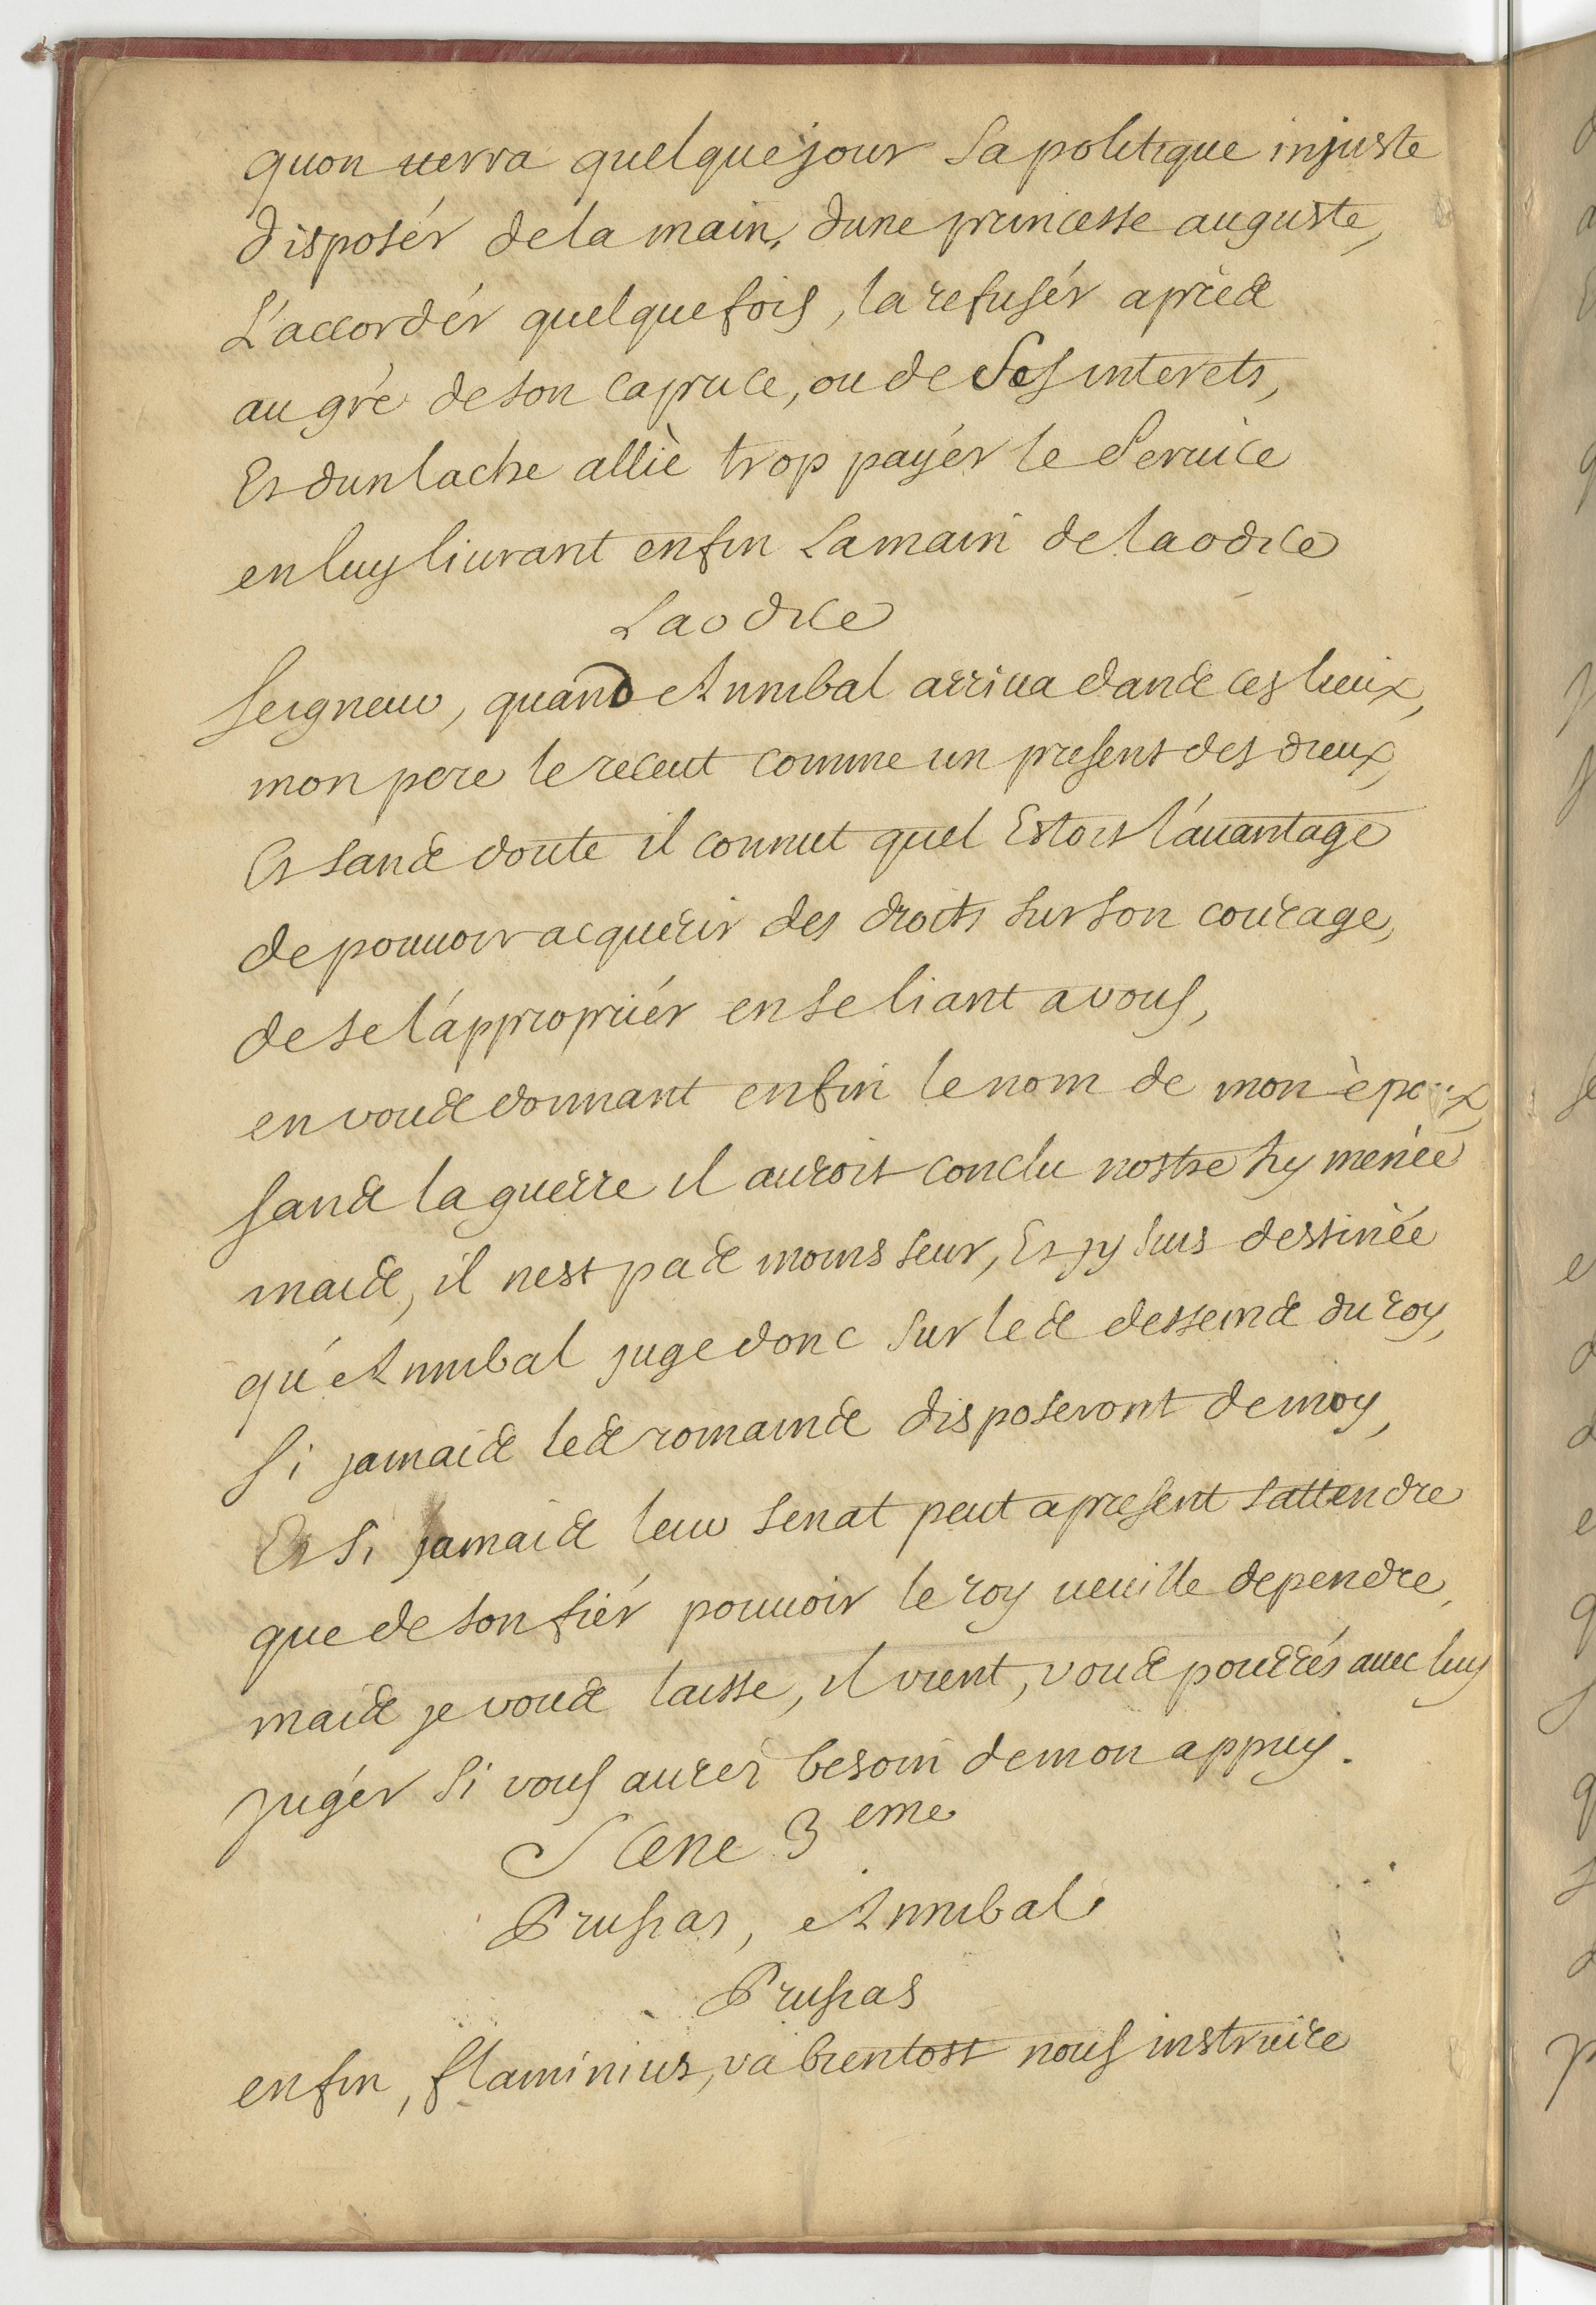 quon verra quelque jour sa politique injuste
disposér de la main, dune princesse auguste,
L'accordér quelquefois, la refusér aprés
au gré de son caprice, ou de ses interets,
Et dun lache alliè trop payér le service
en luy livrant enfin la main de laodice
Laodice
seigneur, quand Annibal arriva dans ces lieux,
mon pere le receut comme un present des dieux,
Et sans doute il connut quel Estoit l'avantage
de pouvoir acquerir des droits sur son courage,
de se l'approprier en se liant a vous,
en vous donnant enfin le nom de mon èpoux,
sans la guerre il auroit conclu nostre hymenée
mais, il nest pas moins seur, Et jy suis destinée
qu'Annibal juge donc sur les desseins du roy,
si jamais les romains disposeront de moy,
Et si jamais leur senat peut apresent sattendre
que de son fiér pouvoir le roy veuille dependre,
mais je vous laisse, il vient, vous pourrés avec luy
jugér si vous aurez besoin de mon appuy.
Scene 3 eme
Prusias, Annibal
Prusias
enfin, flaminius, va bientost nous instruire